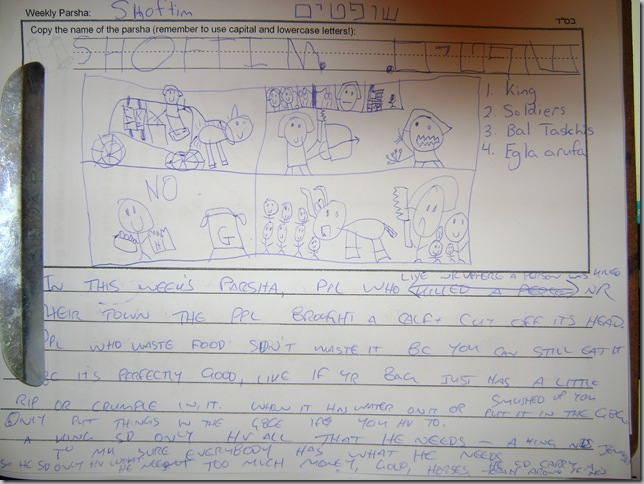 Weekly Parsha: Shoftim שופטים בס"ד
Copy the name of the parsha (remember to use capital and lowercase letters!):
SHOFTIM. שופטים.
1. King
2. Soldiers
3. Bal Taschis
4. Egla arufa
NO
G
IN THIS WEEK'S PARSHA, PPL WHO LIVE NR WHERE A PERSON WAS KILLED NR
THEIR TOWN THE PPL BROUGHT A CALF + CUT OFF IT'S HEAD.
PPL WHO WASTE FOOD SDN'T WASTE IT BC YOU CAN STILL EAT IT
BC IT'S PERFECTLY GOOD, LIKE IF YR BAG JUST HAS A LITTLE
RIP OR CRUMPLE IN IT. WHEN IT HN WATER ON IT OR SMUSHED IF YOU PUT IT IN THE GBGE
ONLY PUT THINGS IN THE GBGE IF YOU HV TO.
A KING SD ONLY HV ALL THAT HE NEEDS - A KING
TO MK SURE EVERYBODY HAS WHAT HE NEEDS
SO HE SD ONLY HV WHAT HE TOO MUCH MONEY, GOLD, HORSES HE SD CARRY